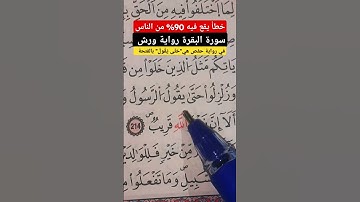 خطأ يقع فيه 90% من الناس
سورة البقرة رواية ورش
في رواية حفص هي "حتى يقولَ" بالفتحة
لِمَا اَخْتَلَفُواْ فِيهِ مِنَ اَلْحَقِّ
يَاتِكُم مَّثَلُ اُلذِينَ خَلَوْاْ مِن
وَزُلْزِلُواْ حَتَّىٰ يَقُولُ اُلرَّسُولُ وَ
أَلَآ إِنَّ اَللَّهِ قَرِيبٌ 214
مِّنْ خَيْرٍ فَلِلْوَٰلِدَ
اِ۬لسَّبِيلِ وَمَا تَفْعَلُواْ